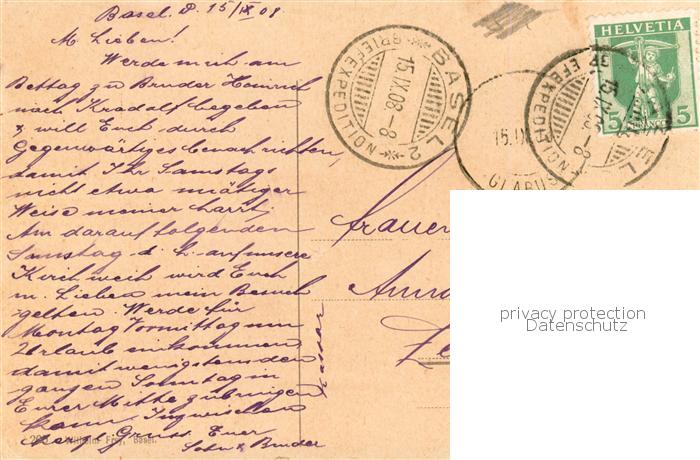 Basel. d. 15/IX 08
M. Lieben!
Werde mich am
Bettag zu Bruder Heinrich
nach Kradolf begeben
& will Euch durch
Gegenwärtiges benachrichten,
damit Ihr Samstags
nicht etwa unnötiger
Weise meiner harrt.
Am darauf folgenden
Samstag d. h. auf unsere
Kirchweih wird Euch
m. Lieben mein Besuch
gelten. Werde für
Montag Vormittag um
Urlaub einkommen
damit wenigstens den
ganzen Sonntag in
Eurer Mitte zubringen
kann. Inzwischen
herzl. Gruss Euer
Sohn & Bruder
Wilhelm Frey, Basel.
BASEL 2
15.IX.08-8
BRIEFEXPEDITION
15.IX
GLARUS
BRIEFEXPEDITION
HELVETIA
5 5
Frauen
privacy protection
Datenschutz